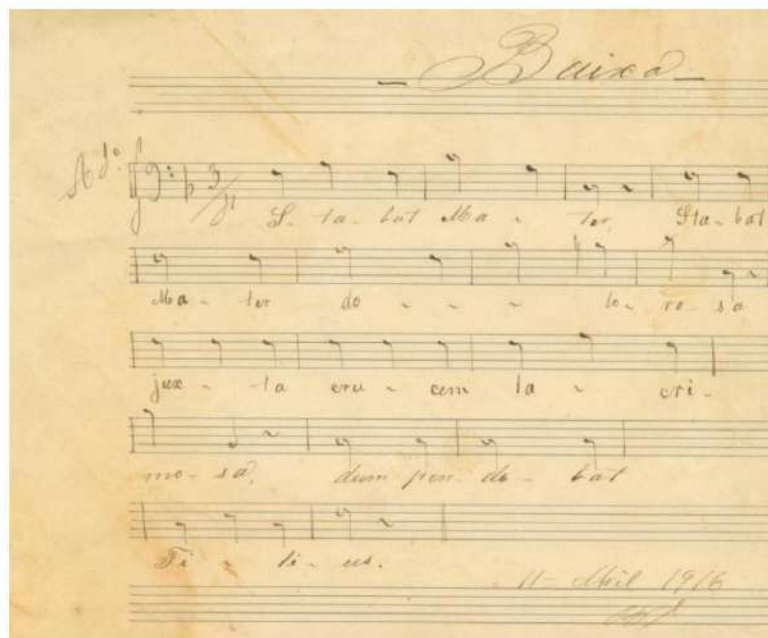 - Baixo -
Ad.º 3/4 S- ta- bat Ma - ter, Sta- bat
Ma - ter do - - - lo - ro- sa
jux - ta cru - cem la - cri-
mo- sa, dum pen- de- bat
Fi - li - us.
11- Abril 1916